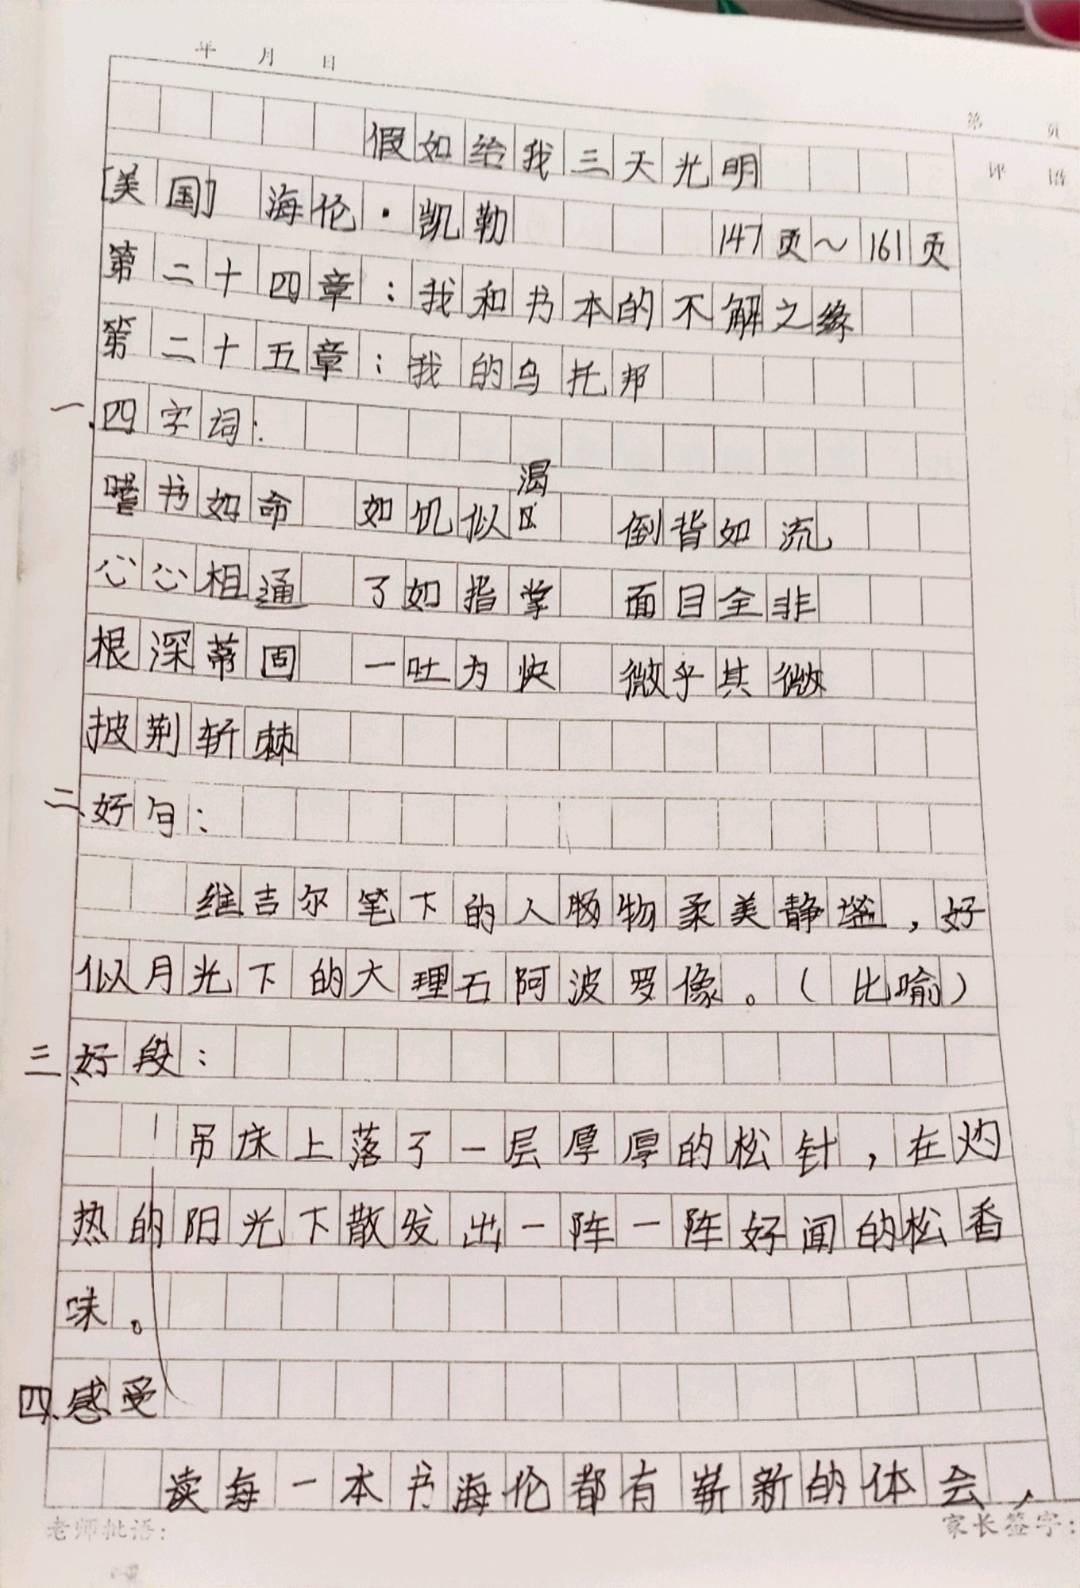 年 月 日
第 页
评语
假如给我三天光明
[美国] 海伦·凯勒 147页~161页
第二十四章：我和书本的不解之缘
第二十五章：我的乌托邦
一、四字词：
嗜书如命 如饥似渴 倒背如流
心心相通 了如指掌 面目全非
根深蒂固 一吐为快 微乎其微
披荆斩棘
二、好句：
维吉尔笔下的人物柔美静谧，好
似月光下的大理石阿波罗像。（比喻）
三、好段：
吊床上落了一层厚厚的松针，在灼
热的阳光下散发出一阵一阵好闻的松香
味。
四、感受
读每一本书海伦都有崭新的体会，
老师批语：
家长签字：